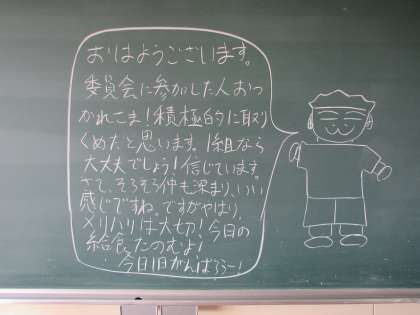 おはようございます。
委員会に参加した人おつ
かれさま!積極的に取り
くめたと思います。1組なら
大丈夫でしょう!信じています。
さて、そろそろ仲も深まり、いい
感じですね。ですがやはり、
メリハリは大切!今日の
給食、たのむよ!
今日1日がんばろう!